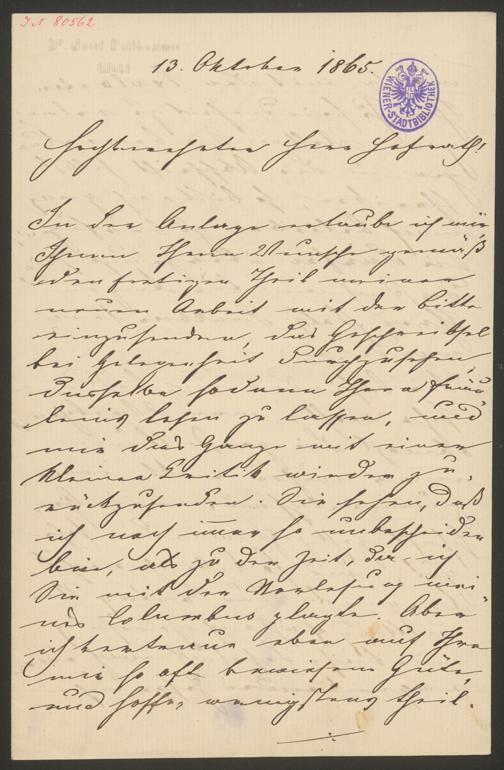 I.N 80562
13. Oktober 1865.
WIENER STADTBIBLIOTHEK
Hochverehrter Herr Hofrath!
In der Anlage erlaube ich mir
Ihrem Wunsche gemäß
den fertigen Theil meiner
neuen Arbeit mit der Bitte
einzusenden, das Geschreibsel
bei Gelegenheit durchzusehen,
dasselbe sodann Ihra Fräu
leins lesen zu lassen, und
mir das Ganze mit einer
kleinen Kritik wieder zu-
rückzusenden. Sie sehen, daß
ich noch immer so unbescheiden
bin, als zu der Zeit, der ich
Sie mit der Vorlesung mei-
nes Columbus plagte. Aber
ich vertraue eben auf Ihre
mir so oft bewiesene Güte,
und hoffe, wenigstens theil-